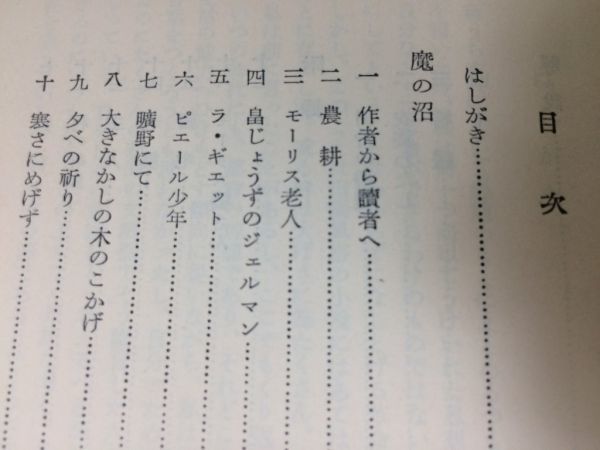 目次
はしがき…………
魔の沼
一 作者から讀者へ…………
二 農耕…………
三 モーリス老人…………
四 畠じょうずのジェルマン…………
五 ラ・ギエット…………
六 ピエール少年…………
七 曠野にて…………
八 大きなかしの木のこかげ…………
九 夕べの祈り…………
十 寒さにめげず…………